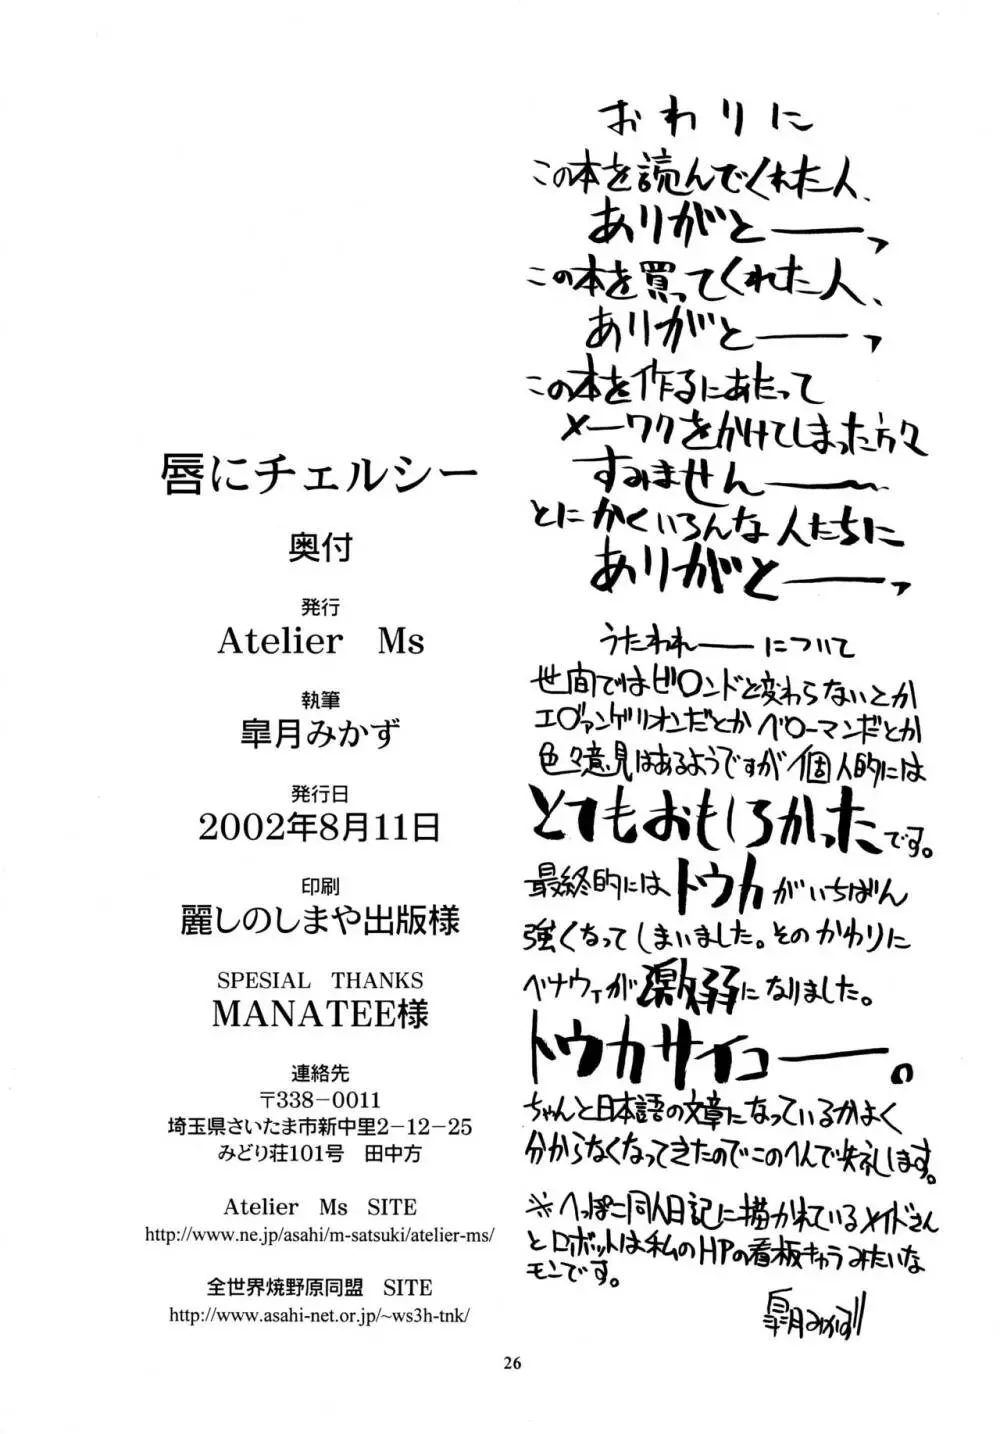 おわりに
この本を読んでくれた人、
ありがとーーっ
この本を買ってくれた人、
ありがとーーっ
この本を作るにあたって
メーワクをかけてしまった方々
すみませんーー
とにかくいろんな人たちに
ありがとーーっ
うたわれーーについて
世間ではビロンドと変わらないとか
エ〇ァンゲリオンだとかベ〇ーマンだとか
色々意見はあるようですが個人的には
とてもおもしろかったです。
最終的にはトウカがいちばん
強くなってしまいました。そのかわりに
ベナウィが激弱になりました。
トウカサイコーー。
ちゃんと日本語の文章になっているかよく
分からなくなってきたのでこのへんで失礼します。
※へっぽこ同人日記に描かれているメイドさん
とロボットは私のHPの看板キャラみたいな
モンです。
皐月みかず
唇にチェルシー
奥付
発行
Atelier Ms
執筆
皐月みかず
発行日
2002年8月11日
印刷
麗しのしまや出版様
SPESIAL THANKS
MANATEE様
連絡先
〒338-0011
埼玉県さいたま市新中里2-12-25
みどり荘101号 田中方
Atelier Ms SITE
http://www.ne.jp/asahi/m-satsuki/atelier-ms/
全世界焼野原同盟 SITE
http://www.asahi-net.or.jp/~ws3h-tnk/
26